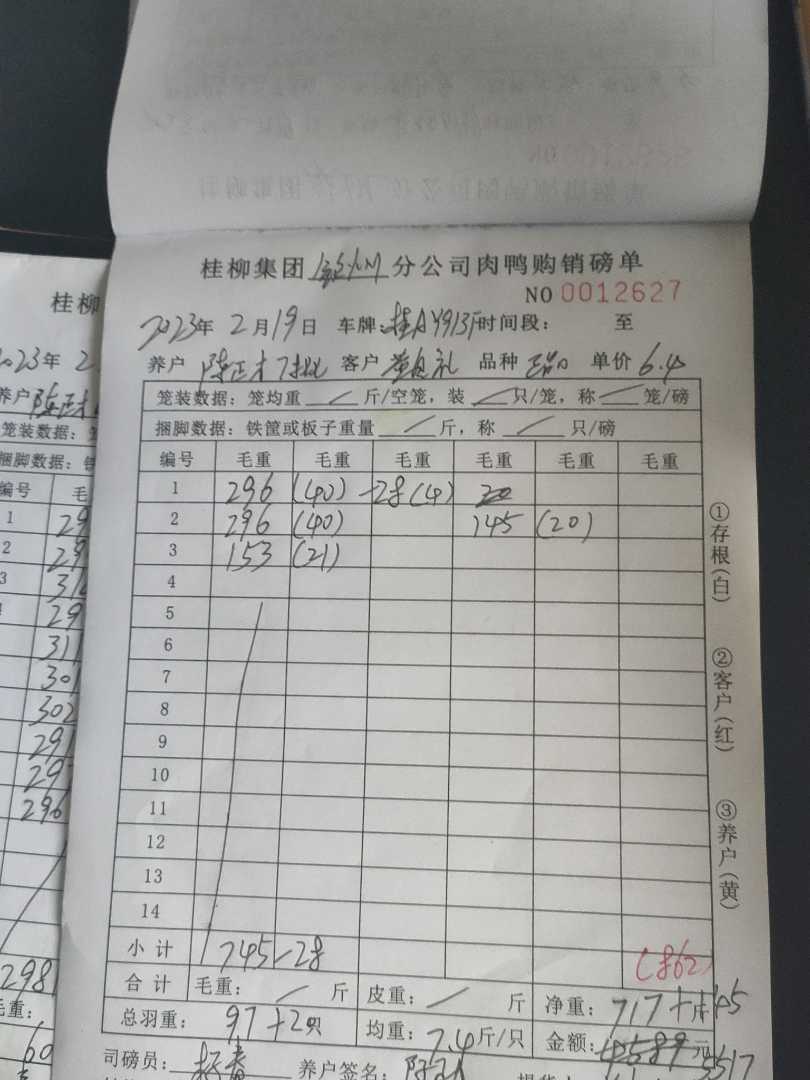 桂柳集团钦州分公司肉鸭购销磅单
NO 0012627
2023年 2月19日 车牌:桂AY913F时间段: 至
养户 陈正才7批 客户 黄 礼 品种 单价6.4
笼装数据: 笼均重 斤/空笼, 装 只/笼, 称 笼/磅
捆脚数据: 铁筐或板子重量 斤, 称 只/磅
编号 毛重 毛重 毛重 毛重 毛重 毛重
1 296 (40) -28(4)
2 296 (40) 145 (20)
3 153 (21)
4
5
6
7
8
9
10
11
12
13
14
小计 745-28 (862)
合计 毛重: 斤 皮重: 斤 净重: 717+145
总羽重: 97+20只 均重: 7.4斤/只 金额: 4589元 5517
司磅员: 杨 养户签名: 陈
①存根(白)
②客户(红)
③养户(黄)
桂柳
2023年 2
养户 陈正才
笼装数据:
捆脚数据:
编号 毛
1 29
2 29
3 31
29
311
301
302
291
29
296
298
毛重:
60